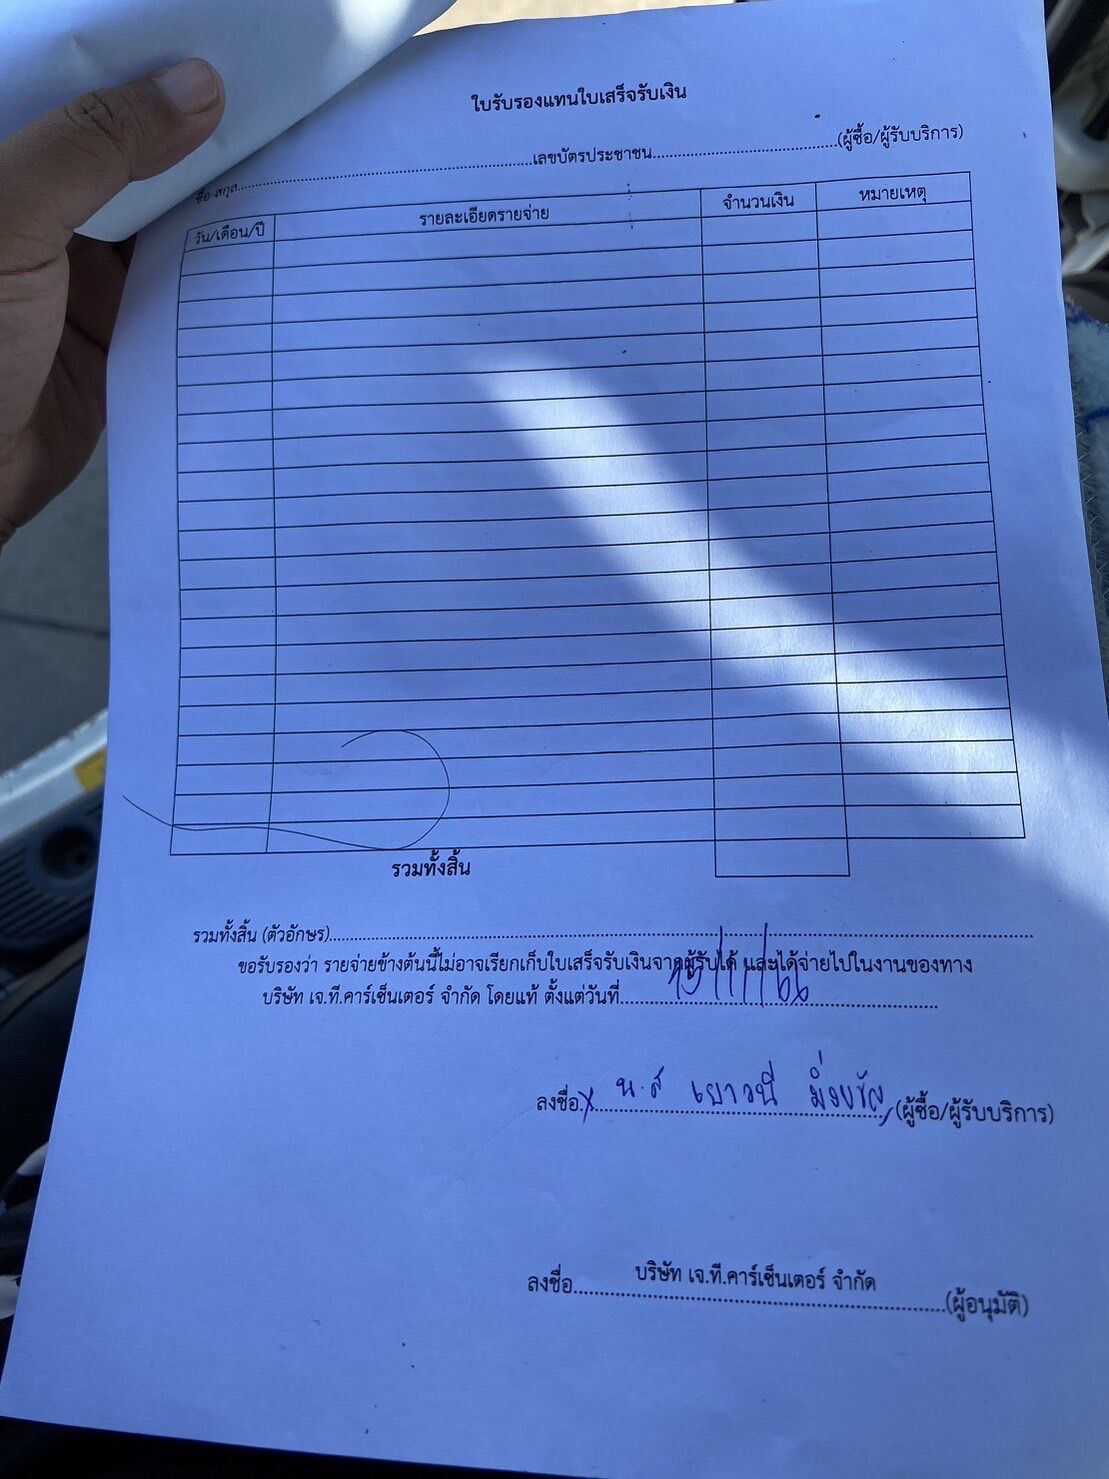 ใบรับรองแทนใบเสร็จรับเงิน
ชื่อ-สกุล........................................เลขบัตรประชาชน........................................(ผู้ซื้อ/ผู้รับบริการ)
วัน/เดือน/ปี รายละเอียดรายจ่าย จำนวนเงิน หมายเหตุ
รวมทั้งสิ้น
รวมทั้งสิ้น (ตัวอักษร)........................................
ขอรับรองว่า รายจ่ายข้างต้นนี้ไม่อาจเรียกเก็บใบเสร็จรับเงินจากผู้รับได้ และได้จ่ายไปในงานของทาง
บริษัท เจ.ที.คาร์เซ็นเตอร์ จำกัด โดยแท้ ตั้งแต่วันที่........................................
ลงชื่อ x น.ส เยาวนี (ผู้ซื้อ/ผู้รับบริการ)
ลงชื่อ..........บริษัท เจ.ที.คาร์เซ็นเตอร์ จำกัด..........(ผู้อนุมัติ)